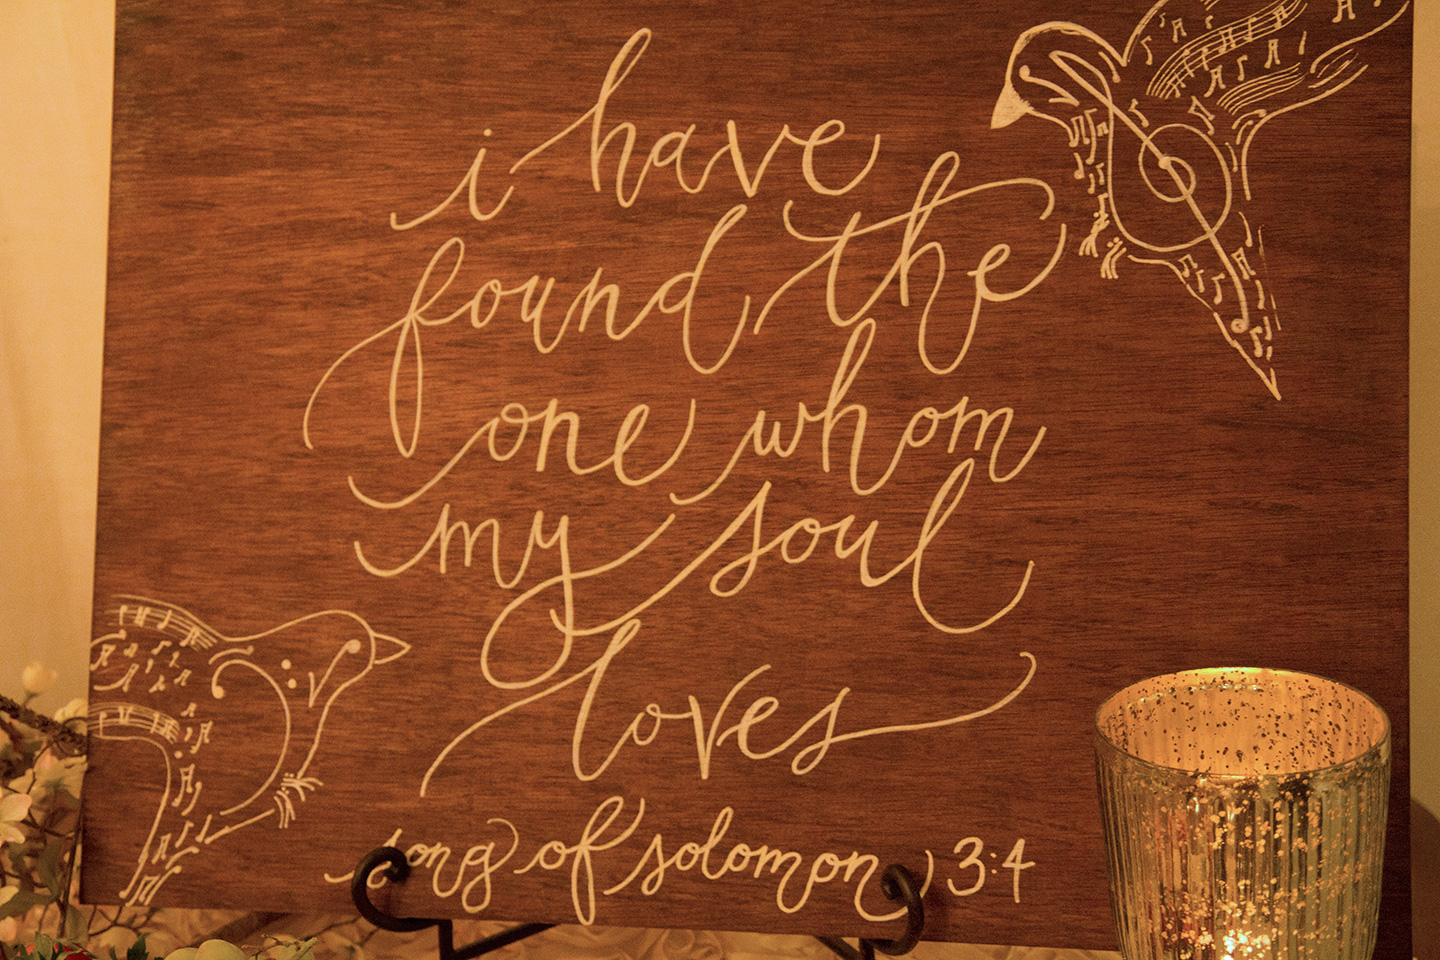 i have
found the
one whom
my soul
loves
song of solomon 3:4